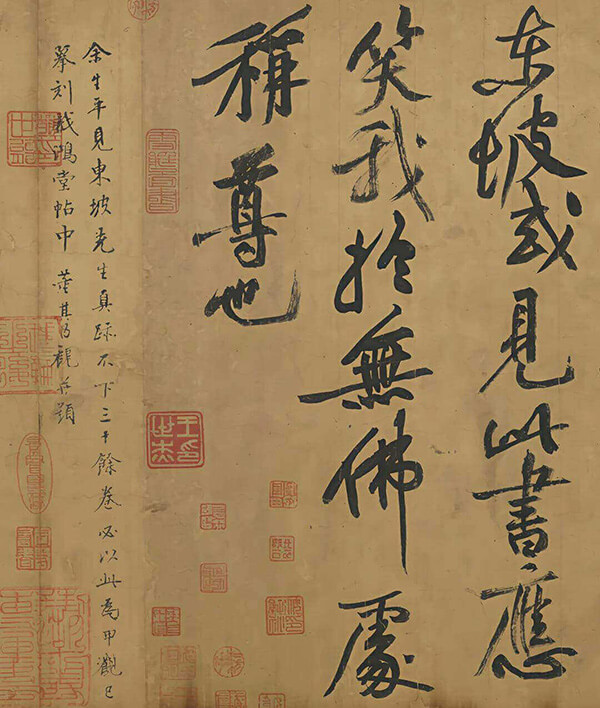 東坡或見此書應
笑我於無佛處
稱尊也
余生平見東坡先生真跡不下三十餘卷必以此為甲觀已
摹刻戲鴻堂帖中 董其昌觀并題